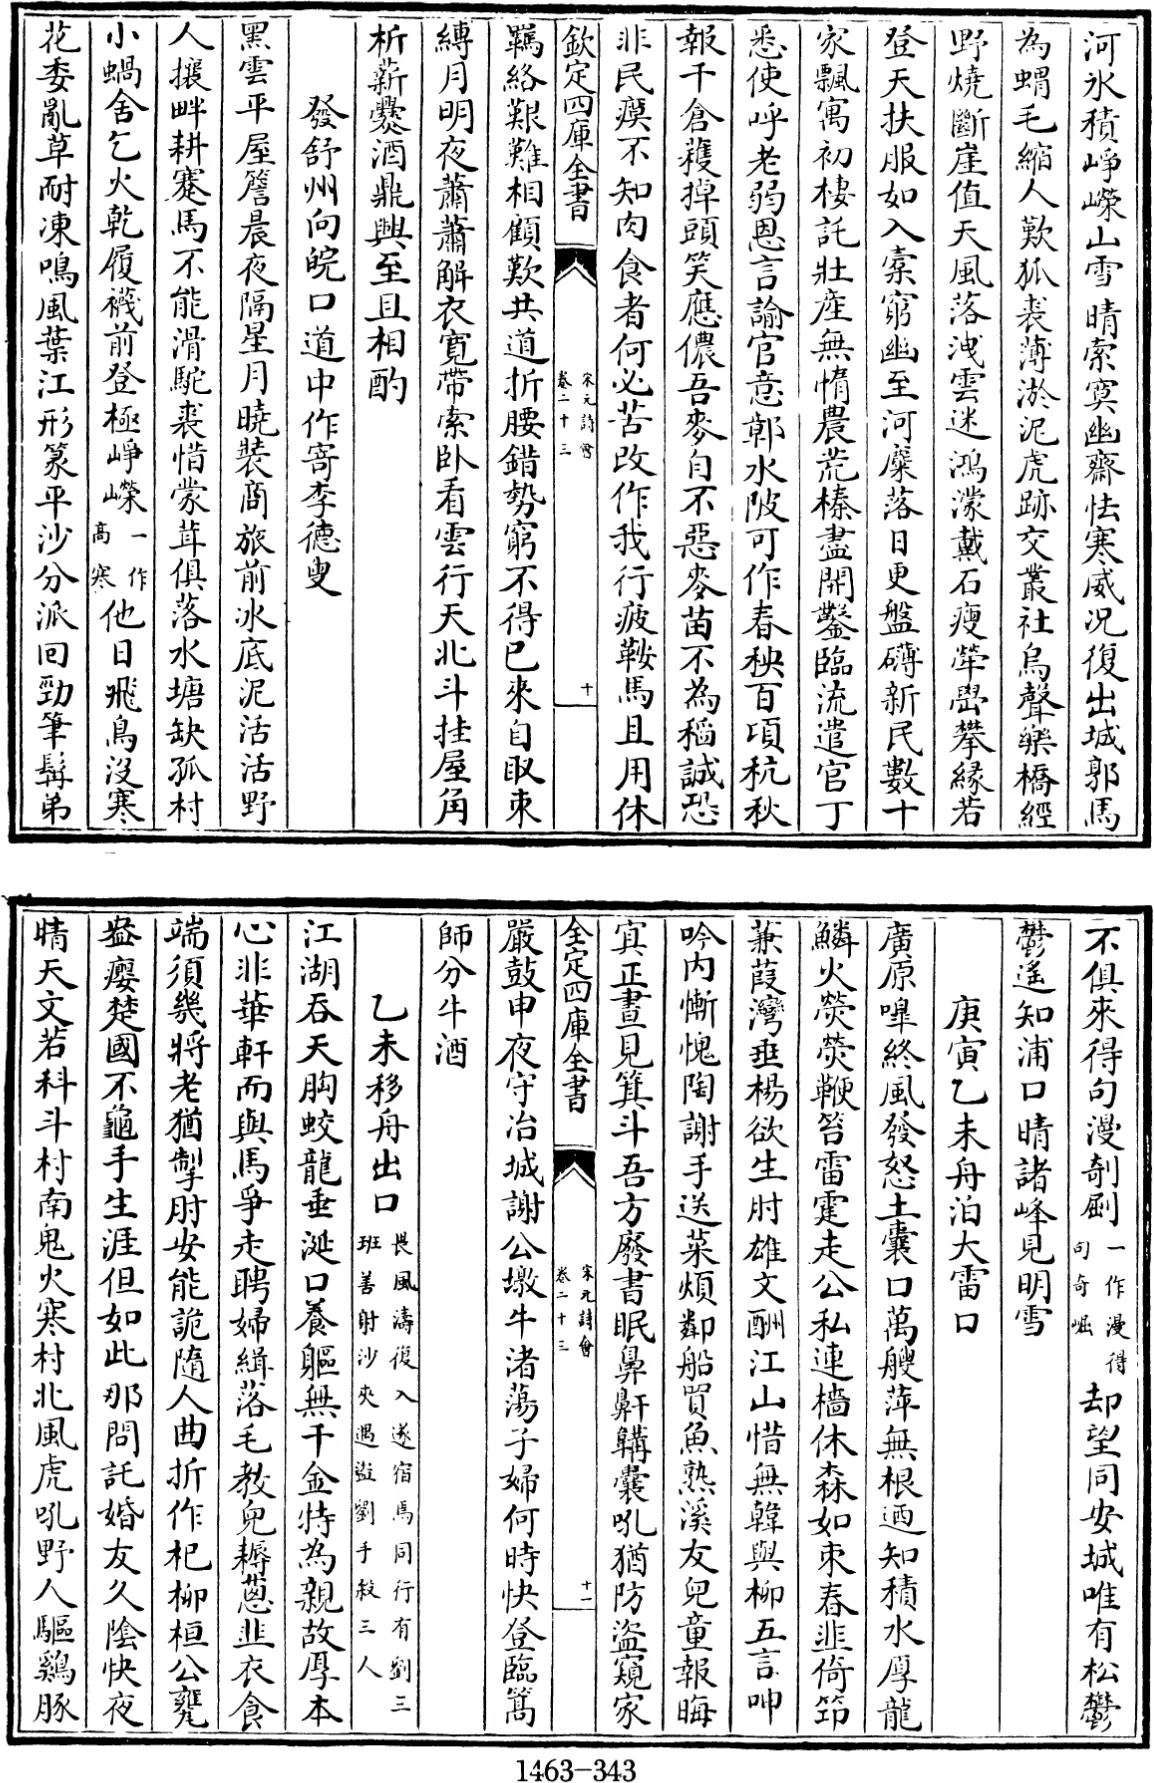 河氷積崢嶸山雪晴索寞幽齋怯寒威況復出城郭馬
為蝟毛縮人歎狐裘薄淤泥虎跡交叢社烏聲樂橋經
野燒斷崖值天風落洩雲迷鴻濛戴石瘦犖嶨攀緣若
登天扶服如入槖窮幽至河麋落日更盤礴新民數十
家飄寓初棲託壯產無惰農荒榛盡開鑿臨流遣官丁
悉使呼老弱恩言諭官意鄣水陂可作春秧百頃秔秋
報千倉穫掉頭笑應儂吾麥自不惡麥苗不為稻誠恐
非民瘼不知肉食者何必苦改作我行疲鞍馬且用休
欽定四庫全書
宋元詩會
卷二十三
十
羈絡艱難相顧歎共道折腰錯勢窮不得已來自取束
縛月明夜蕭蕭解衣寬帶索卧看雲行天北斗挂屋角
析薪爨酒鼎興至且相酌
發舒州向皖口道中作寄李德叟
黑雲平屋簷晨夜隔星月曉裝商旅前冰底泥活活野
人讓畔耕蹇馬不能滑駝裘惜蒙茸俱落水塘缺孤村
小蝸舍乞火乾履襪前登極崢嶸
一作
高寒
他日飛鳥沒寒
花委亂草耐凍鳴風葉江形篆平沙分派回勁筆髯弟
不俱來得句漫剞劂
一作漫得
句奇崛
却望同安城唯有松鬱
鬱遙知浦口晴諸峰見明雪
庚寅乙未舟泊大雷口
廣原嘷終風發怒土囊口萬艘萍無根迺知積水厚龍
鱗火熒熒鞭笞雷霆走公私連檣休森如束春韭倚笻
蒹葭灣垂楊欲生肘雄文酬江山惜無韓與柳五言呻
吟內慚愧陶謝手送菜煩鄰船買魚熟溪友兒童報晦
寘正晝見箕斗吾方廢書眠鼻鼾韝囊吼猶防盜窺家
全定四庫全書
宋元詩會
卷二十三
十一
嚴鼓申夜守冶城謝公墩牛渚蕩子婦何時快登臨篙
師分牛酒
乙未移舟出口
畏風濤復入遂宿焉同行有劉三
班善射沙夾遇盜劉手殺三人
江湖吞天胸蛟龍垂涎口養軀無千金特為親故厚本
心非華軒而與馬爭走聘婦緝落毛教兒耨蔥韭衣食
端須幾將老猶掣肘安能詭隨人曲折作杞柳桓公甕
盎癭楚國不龜手生涯但如此那問託婚友久陰快夜
晴天文若科斗村南鬼火寒村北風虎吼野人驅雞豚
1463-343